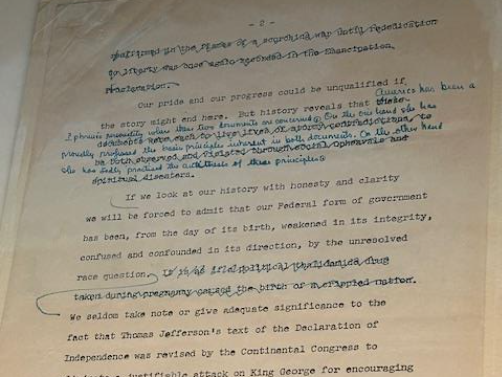 - 2 -
in the flames of a searching war until rededication
liberty was once again affirmed in the Emancipation
Proclamation.
Our pride and our progress could be unqualified if
America has been a
the story might end here. But history reveals that these
personality where these two documents are concerned. On the one hand she has
documents were each to live lives of stormy contradictions, to
proudly professed the basic principles inherent in both documents. On the other hand
be both observed and violated through social upheavals and
she has sadly practiced the antithesis of these principles.
spiritual disasters.
If we look at our history with honesty and clarity
we will be forced to admit that our Federal form of government
has been, from the day of its birth, weakened in its integrity,
confused and confounded in its direction, by the unresolved
race question. It is as if a political thalidomide drug
taken during pregnancy caused the birth of a crippled nation.
We seldom take note or give adequate significance to the
fact that Thomas Jefferson's text of the Declaration of
Independence was revised by the Continental Congress to
a justifiable attack on King George for encouraging